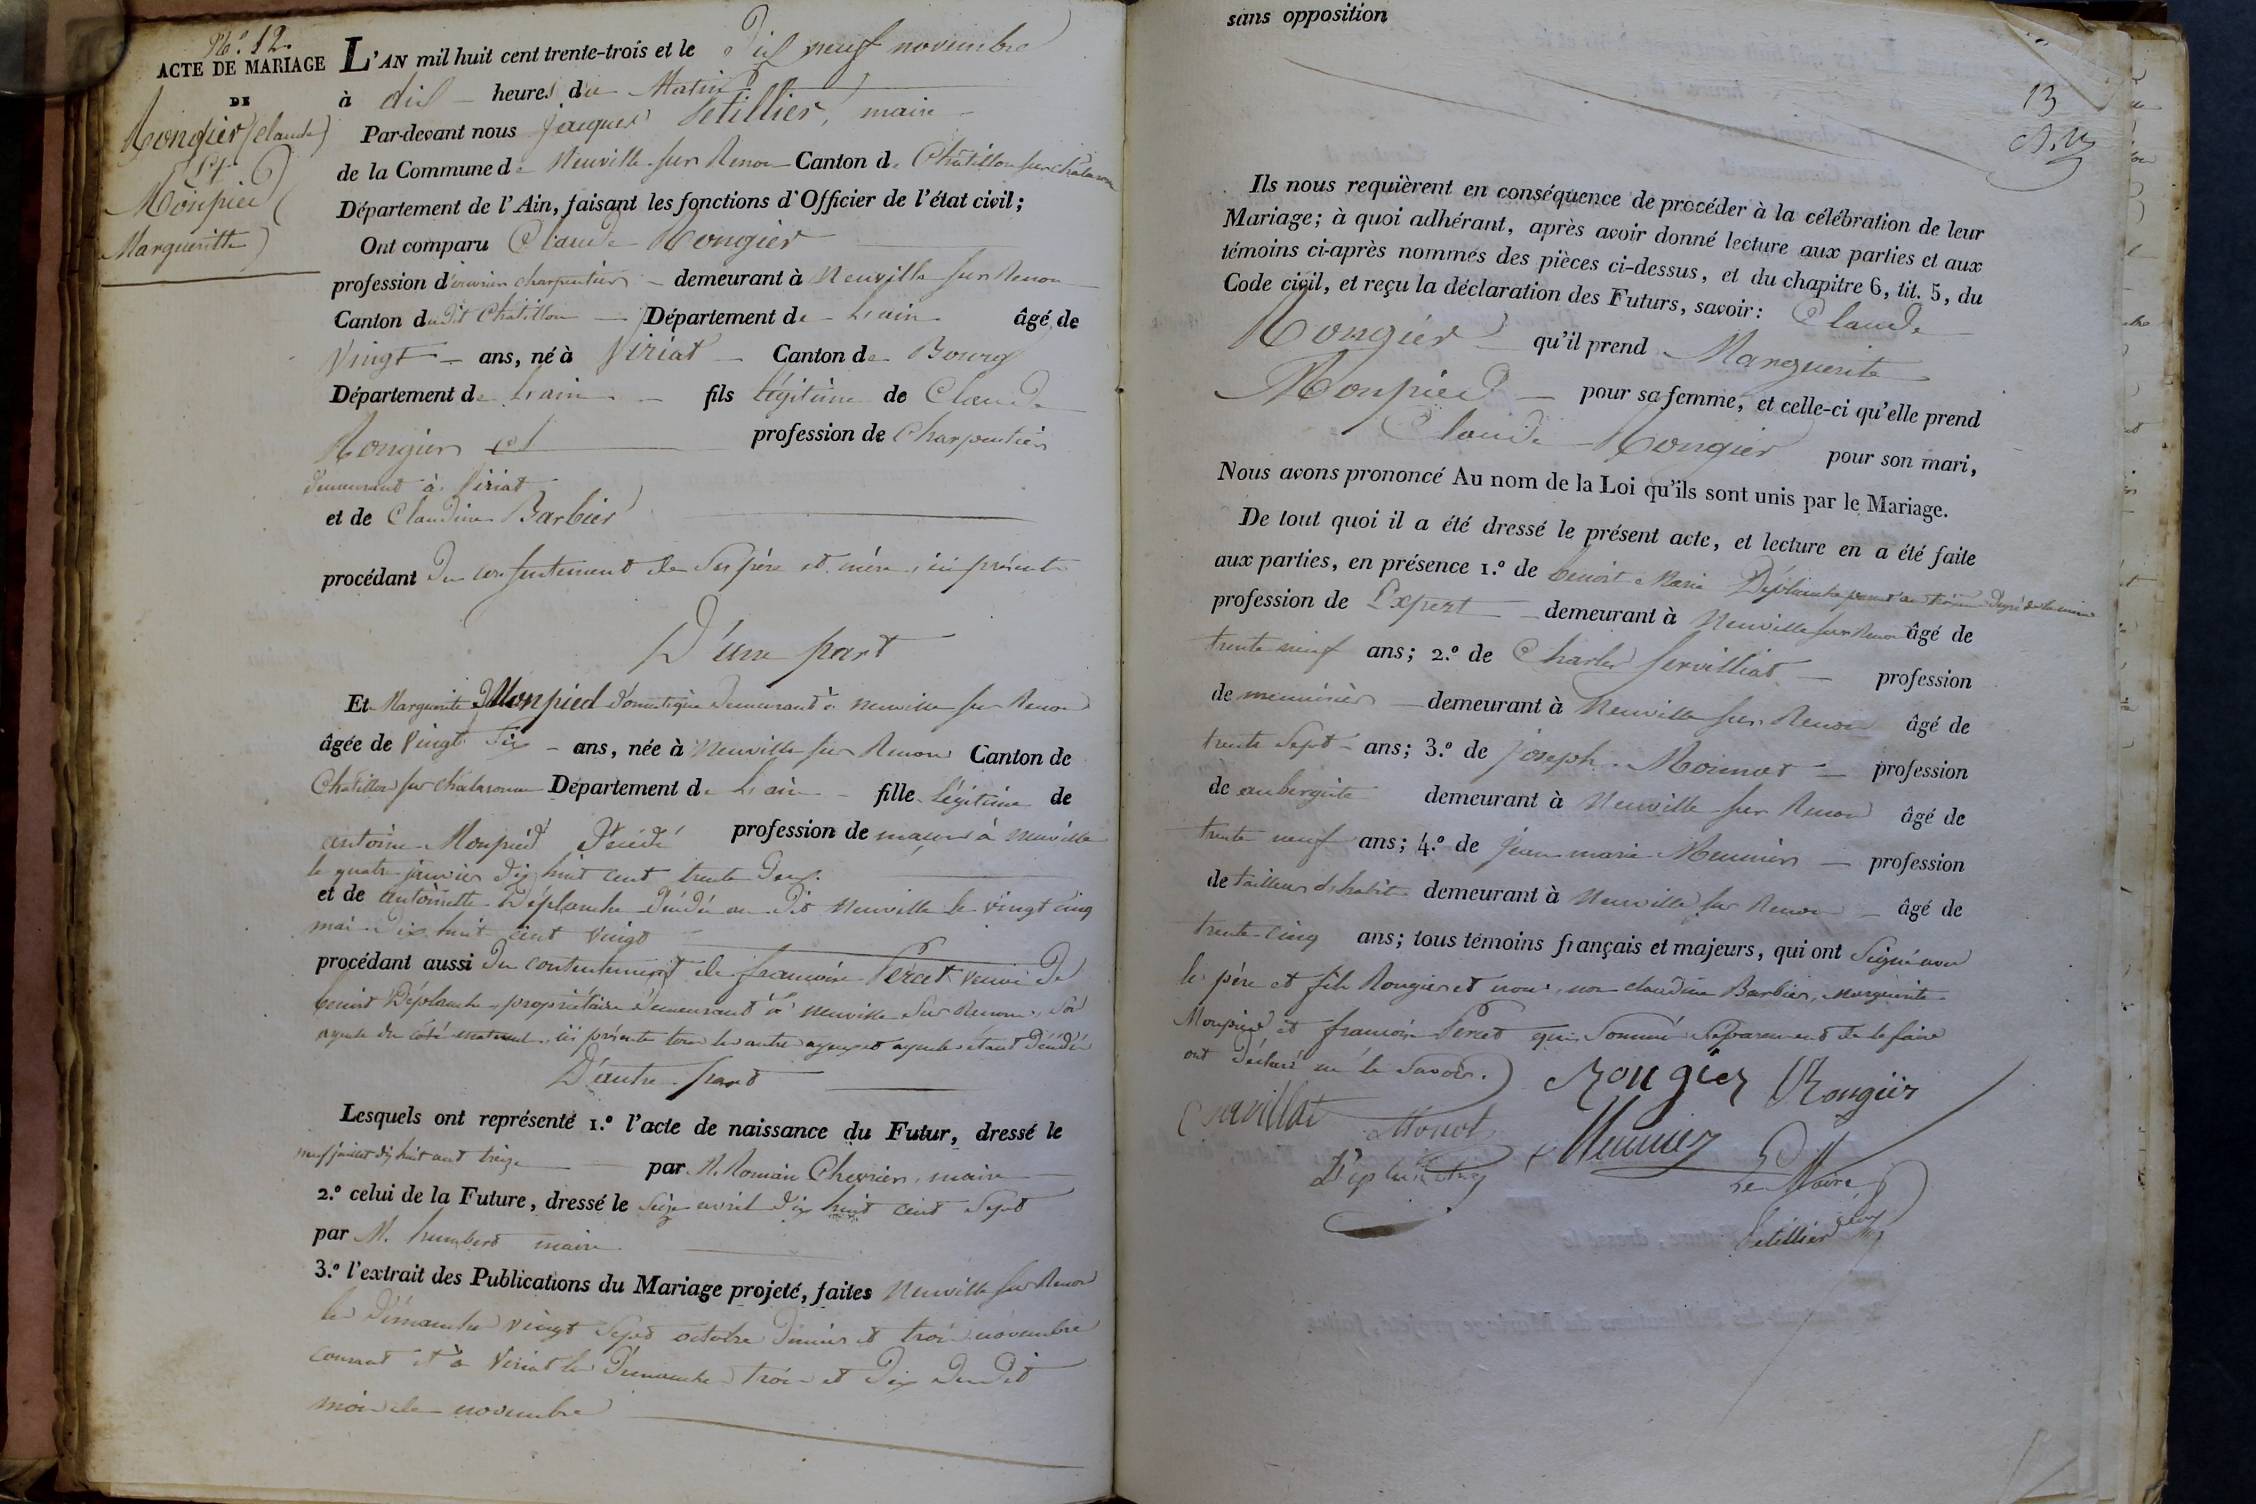 N.º 12.
ACTE DE MARIAGE
DE
Rongier (Claude)
Et
Monpied
Margueritte
L'AN mil huit cent trente-trois et le Dix neuf novembre
à dix heures du Matin
Par-devant nous jacques Petillier, maire
de la Commune de Neuville sur Renon Canton de Châtillon sur Chalaronne
Département de l'Ain, faisant les fonctions d'Officier de l'état civil;
Ont comparu Claude Rongier
profession d'ouvrier charpentier demeurant à Neuville sur Renon
Canton dudit Châtillon Département de L'ain âgé de
Vingt ans, né à Viriat Canton de Bourg
Département de L'ain fils légitime de Claude
Rongier et profession de Charpentier
demeurant à Viriat
et de Claudine Barbier
procédant Du consentement de Ses père et mère, ici présents
D'une part
Et Marguerite Monpied domestique demeurant à Neuville sur Renon
âgée de Vingt Six ans, née à Neuville sur Renon Canton de
Châtillon sur Chalaronne Département de L'ain fille légitime de
antoine Monpied Décédé profession de maçon à Neuville
le quatre janvier dix huit cent trente Deux.
et de antoinette Déplanche décédée au dit Neuville le vingt cinq
mai dix huit cent vingt
procédant aussi du contentement de françoise Percet veuve De
benoit Déplanche propriétaire demeurant à Neuville Sur Renon, Son
ayeule du coté maternel, ici présente tous les autres ayeux et ayeules étant Décédés
D'autre part
Lesquels ont représenté 1.º l'acte de naissance du Futur, dressé le
neuf juillet dix huit cent treize par M. Romain Chevrier, maire
2.º celui de la Future, dressé le Seize avril dix huit cent Sept
par M. humbert maire
3.º l'extrait des Publications du Mariage projeté, faites Neuville sur Renon
les Dimanches vingt Sept octobre dernier et trois novembre
courant et à Viriat les Dimanches trois et Dix Du dit
mois de novembre
sans opposition
13
Ils nous requièrent en conséquence de procéder à la célébration de leur
Mariage; à quoi adhérant, après avoir donné lecture aux parties et aux
témoins ci-après nommés des pièces ci-dessus, et du chapitre 6, tit. 5, du
Code civil, et reçu la déclaration des Futurs, savoir: Claude
Rongier qu'il prend Marguerite
Monpied pour sa femme, et celle-ci qu'elle prend
Claude Rongier pour son mari,
Nous avons prononcé Au nom de la Loi qu'ils sont unis par le Mariage.
De tout quoi il a été dressé le présent acte, et lecture en a été faite
aux parties, en présence 1.º de benoit Marie Déplanche parent au troisième Degré de la mariée
profession de Expert demeurant à Neuville sur Renon âgé de
trente neuf ans; 2.º de Charles Servilliat profession
de meunier demeurant à Neuville sur Renon âgé de
trente Sept ans; 3.º de Joseph Monnot profession
de aubergiste demeurant à Neuville sur Renon âgé de
trente neuf ans; 4.º de Jean marie Meunier profession
de tailleur d'habits demeurant à Neuville sur Renon âgé de
trente-cinq ans; tous témoins français et majeurs, qui ont Signé avec
le père et fils Rongier et nous, non claudine Barbier, Marguerite
Monpied et françoise Percet qui Sommé Séparement de le faire
ont Déclaré ne le Savoir. Rongier Rongier
Servillat Monot Meunier
Déplanche Le Maire
Petillier